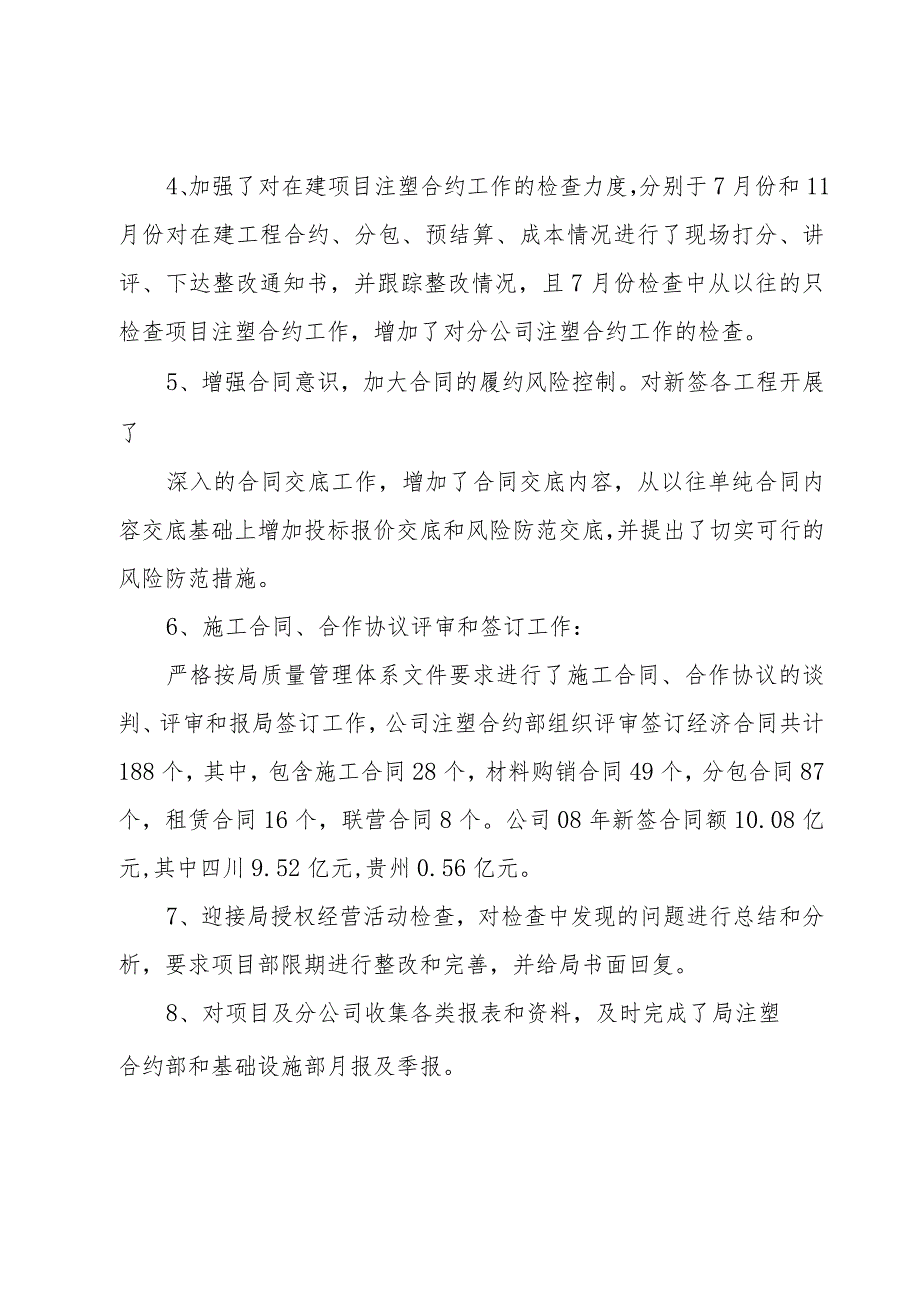 4、加强了对在建项目注塑合约工作的检查力度,分别于 7 月份和 11
月份对在建工程合约、分包、预结算、成本情况进行了现场打分、讲
评、下达整改通知书，并跟踪整改情况，且 7 月份检查中从以往的只
检查项目注塑合约工作，增加了对分公司注塑合约工作的检查。
5、增强合同意识，加大合同的履约风险控制。对新签各工程开展
了
深入的合同交底工作，增加了合同交底内容，从以往单纯合同内
容交底基础上增加投标报价交底和风险防范交底,并提出了切实可行的
风险防范措施。
6、施工合同、合作协议评审和签订工作：
严格按局质量管理体系文件要求进行了施工合同、合作协议的谈
判、评审和报局签订工作，公司注塑合约部组织评审签订经济合同共计
188 个，其中，包含施工合同 28 个，材料购销合同 49 个，分包合同 87
个，租赁合同 16 个，联营合同 8 个。公司 08 年新签合同额 10.08 亿
元,其中四川 9.52 亿元,贵州 0.56 亿元。
7、迎接局授权经营活动检查，对检查中发现的问题进行总结和分
析，要求项目部限期进行整改和完善，并给局书面回复。
8、对项目及分公司收集各类报表和资料，及时完成了局注塑
合约部和基础设施部月报及季报。